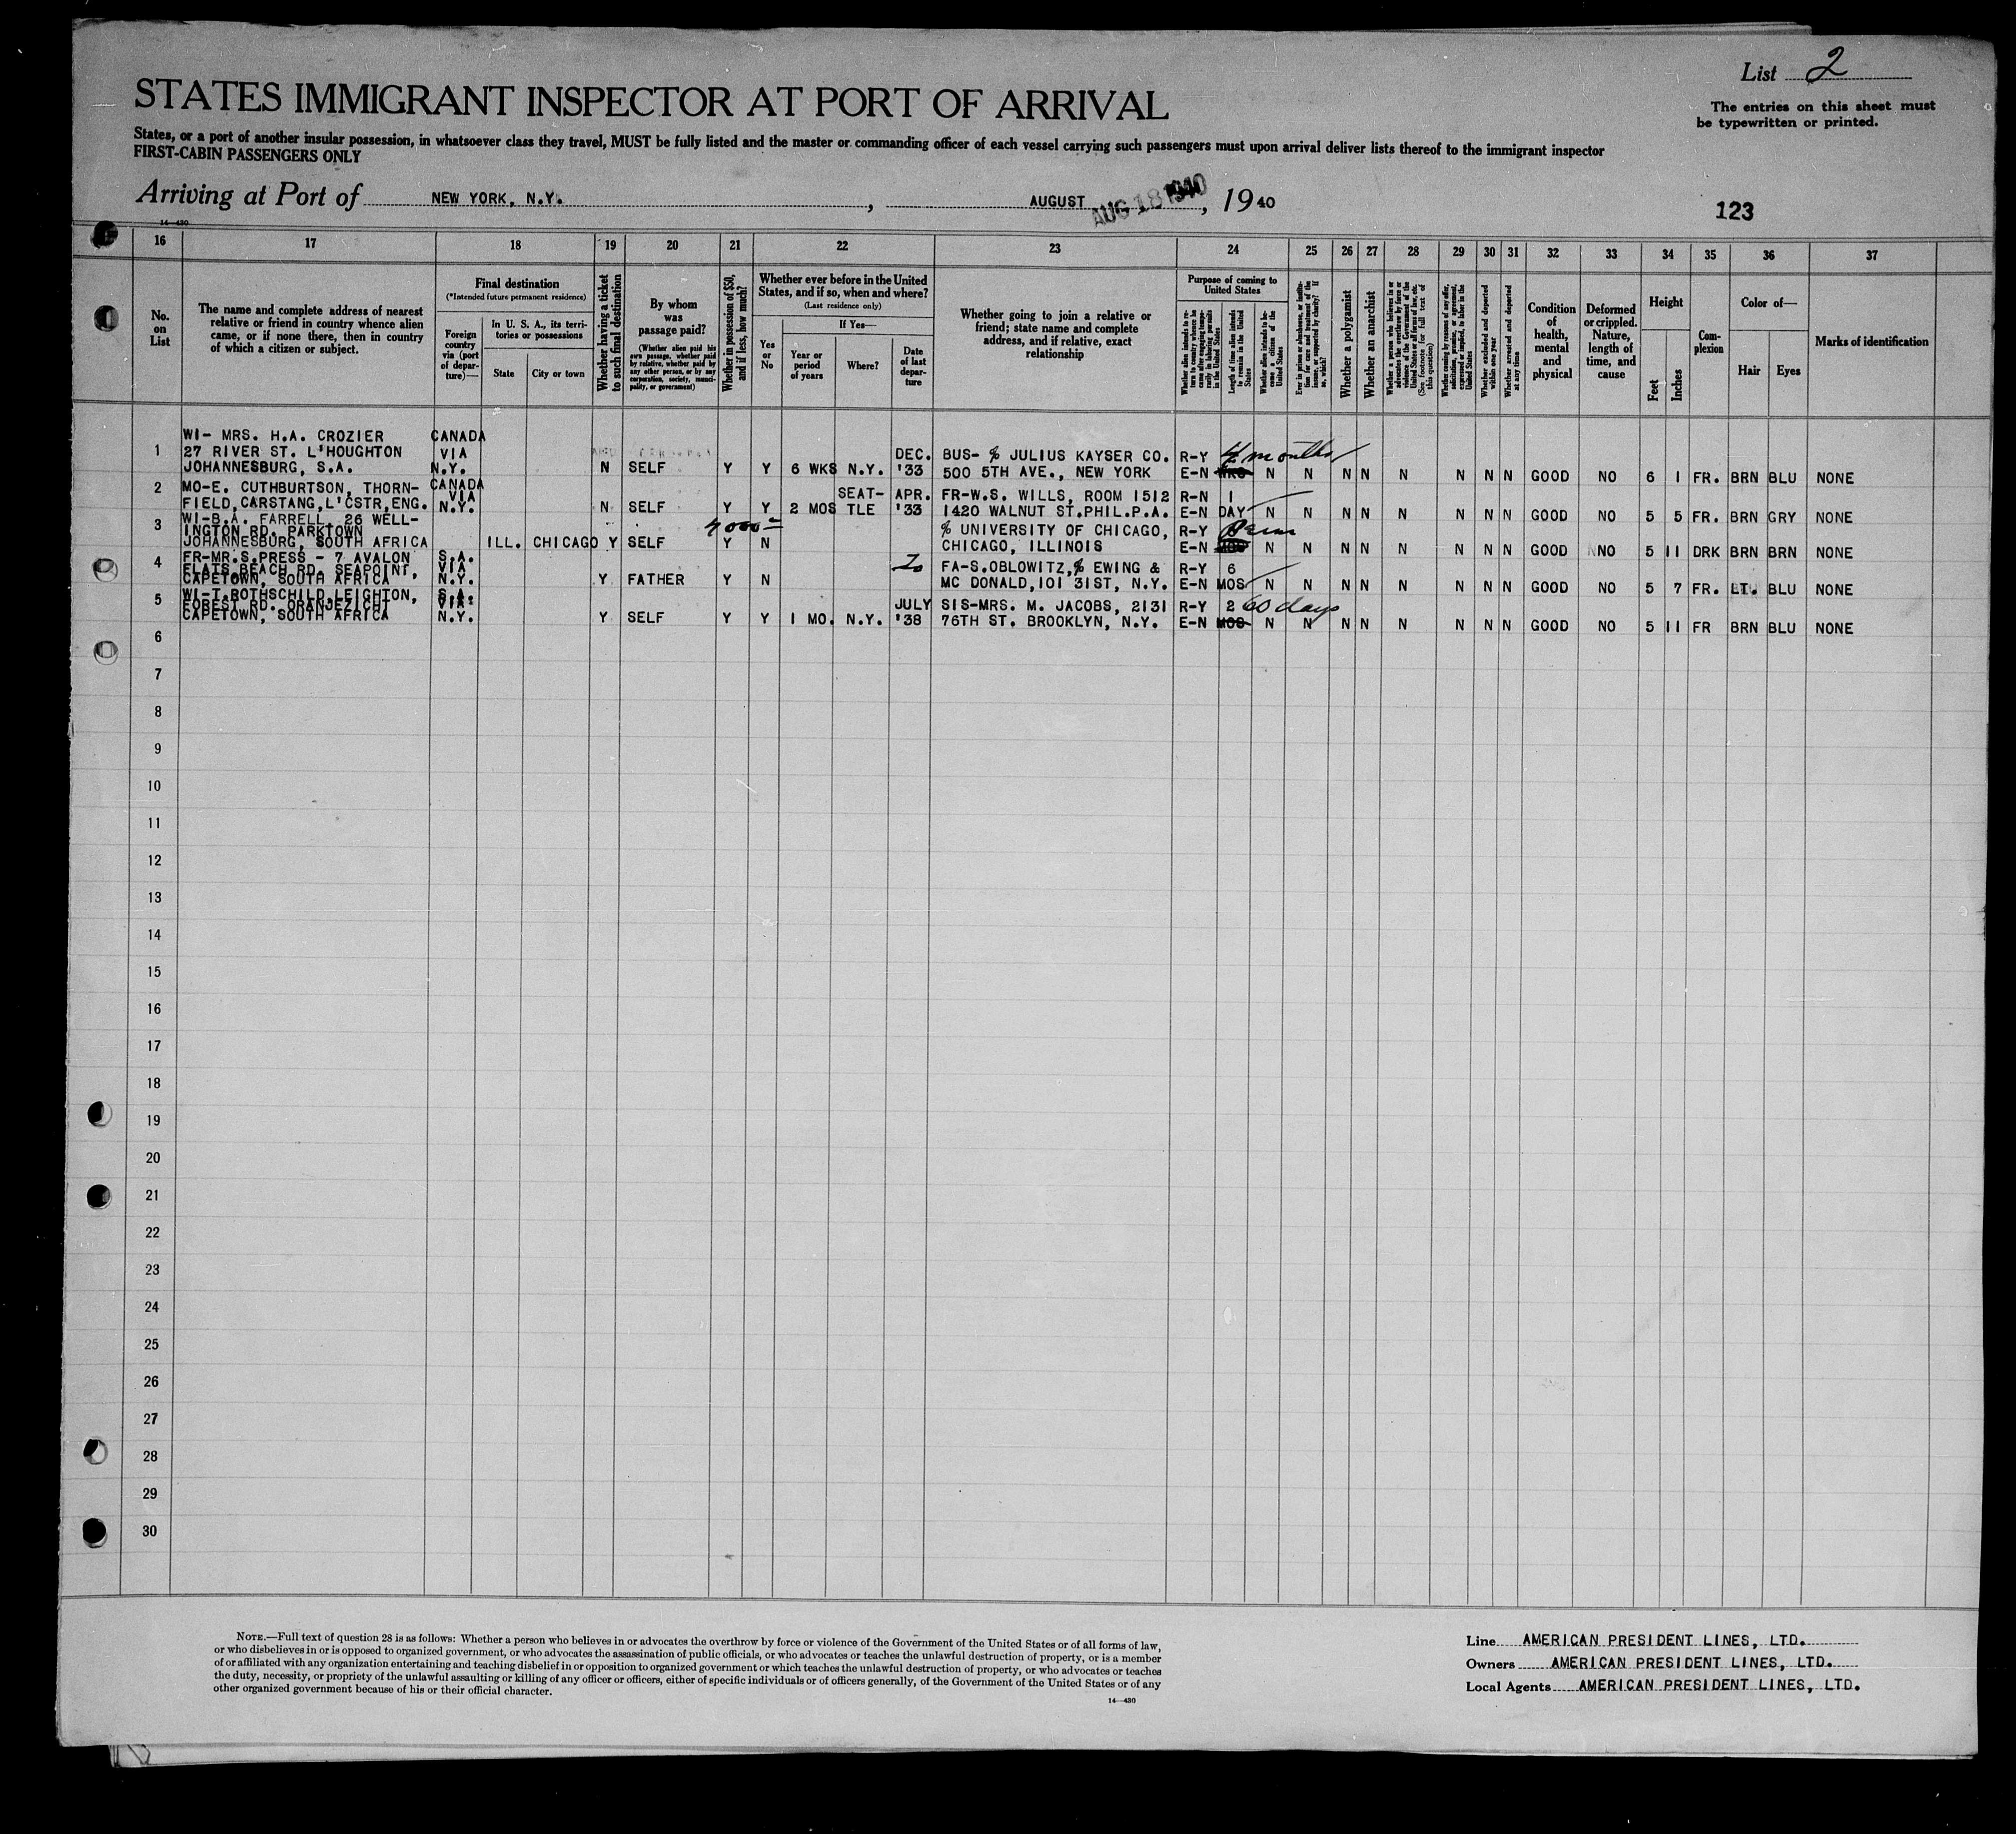 List 2
STATES IMMIGRANT INSPECTOR AT PORT OF ARRIVAL
The entries on this sheet must
be typewritten or printed.
States, or a port of another insular possession, in whatsoever class they travel, MUST be fully listed and the master or commanding officer of each vessel carrying such passengers must upon arrival deliver lists thereof to the immigrant inspector
FIRST-CABIN PASSENGERS ONLY
Arriving at Port of NEW YORK, N.Y., AUGUST AUG 18 1940, 1940
123
14-430
16 17 18 19 20 21 22 23 24 25 26 27 28 29 30 31 32 33 34 35 36 37
No.
on
List
The name and complete address of nearest
relative or friend in country whence alien
came, or if none there, then in country
of which a citizen or subject.
Final destination
(*Intended future permanent residence)
Foreign
country
via (port
of depar-
ture)—
In U. S. A., its terri-
tories or possessions
State
City or town
Whether having a ticket
to such final destination
By whom
was
passage paid?
(Whether alien paid his
own passage, whether paid
by relative, whether paid by
any other person, or by any
corporation, society, munici-
pality, or government)
Whether in possession of $50,
and if less, how much?
Whether ever before in the United
States, and if so, when and where?
(Last residence only)
Yes
or
No
If Yes—
Year or
period
of years
Where?
Date
of last
depar-
ture
Whether going to join a relative or
friend; state name and complete
address, and if relative, exact
relationship
Purpose of coming to
United States
Whether alien intends to re-
turn to country whence he
came after engaging tempo-
rarily in laboring pursuits
in the United States
Length of time alien intends
to remain in the United
States
Whether alien intends to be-
come a citizen of the
United States
Ever in prison or almshouse, or institu-
tion for care and treatment of the
insane, or supported by charity? If
so, which?
Whether a polygamist
Whether an anarchist
Whether a person who believes in or
advocates the overthrow by force or
violence of the Government of the
United States or all forms of law, etc.
(See footnote for full text of
this question)
Whether coming by reason of any offer,
solicitation, promise, or agreement,
expressed or implied, to labor in the
United States
Whether excluded and deported
within one year
Whether arrested and deported
at any time
Condition
of
health,
mental
and
physical
Deformed
or crippled.
Nature,
length of
time, and
cause
Height
Feet
Inches
Com-
plexion
Color of—
Hair
Eyes
Marks of identification
1 WI- MRS. H.A. CROZIER CANADA
27 RIVER ST. L'HOUGHTON VIA DEC. BUS- % JULIUS KAYSER CO. R-Y 4 months
JOHANNESBURG, S.A. N.Y. N SELF Y Y 6 WKS N.Y. '33 500 5TH AVE., NEW YORK E-N WKS N N N N N N N N GOOD NO 6 1 FR. BRN BLU NONE
2 MO-E. CUTHBURTSON, THORN- CANADA SEAT- APR. FR-W.S. WILLS, ROOM 1512 R-N 1
FIELD,CARSTANG,L'CSTR,ENG. VIA N.Y. N SELF Y Y 2 MOS TLE '33 1420 WALNUT ST.PHIL.P.A. E-N DAY N N N N N N N N GOOD NO 5 5 FR. BRN GRY NONE
3 WI-B.A. FARRELL, 26 WELL-
INGTON RD. PARKTOWN 4000= % UNIVERSITY OF CHICAGO, R-Y Perm
JOHANNESBURG, SOUTH AFRICA ILL. CHICAGO Y SELF Y N CHICAGO, ILLINOIS E-N N N N N N N N N GOOD NO 5 11 DRK BRN BRN NONE
4 FR-MR.S.PRESS - 7 AVALON S.A.
FLATS BEACH RD. SEAPOINT, VIA FA-S.OBLOWITZ,% EWING & R-Y 6
CAPETOWN, SOUTH AFRICA N.Y. Y FATHER Y N MC DONALD,101 31ST, N.Y. E-N MOS N N N N N N N N GOOD NO 5 7 FR. LT. BLU NONE
5 WI-T.ROTHSCHILD,LEIGHTON, S.A.
FOREST RD. ORANJEZICHT VIA. JULY SIS-MRS. M. JACOBS, 2131 R-Y 2 60 days
CAPETOWN, SOUTH AFRICA N.Y. Y SELF Y Y 1 MO. N.Y. '38 76TH ST. BROOKLYN, N.Y. E-N MOS N N N N N N N N GOOD NO 5 11 FR BRN BLU NONE
6
7
8
9
10
11
12
13
14
15
16
17
18
19
20
21
22
23
24
25
26
27
28
29
30
NOTE.—Full text of question 28 is as follows: Whether a person who believes in or advocates the overthrow by force or violence of the Government of the United States or of all forms of law,
or who disbelieves in or is opposed to organized government, or who advocates the assassination of public officials, or who advocates or teaches the unlawful destruction of property, or is a member
of or affiliated with any organization entertaining and teaching disbelief in or opposition to organized government or which teaches the unlawful destruction of property, or who advocates or teaches
the duty, necessity, or propriety of the unlawful assaulting or killing of any officer or officers, either of specific individuals or of officers generally, of the Government of the United States or of any
other organized government because of his or their official character.
14-430
Line AMERICAN PRESIDENT LINES, LTD.
Owners AMERICAN PRESIDENT LINES, LTD.
Local Agents AMERICAN PRESIDENT LINES, LTD.